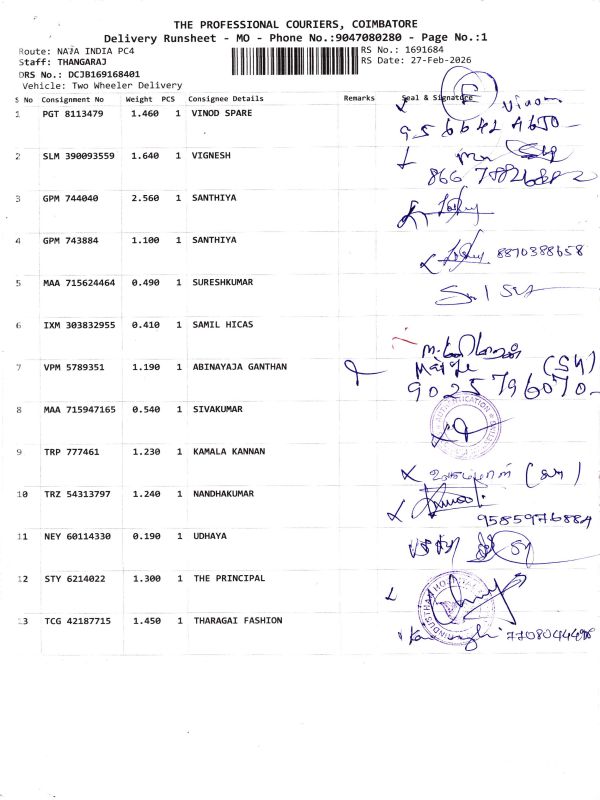 THE PROFESSIONAL COURIERS, COIMBATORE
Delivery Runsheet - MO - Phone No.:9047080280 - Page No.:1
Route: NAJA INDIA PC4 RS No.: 1691684
Staff: THANGARAJ RS Date: 27-Feb-2026
DRS No.: DCJB169168401
Vehicle: Two Wheeler Delivery
S No Consignment No Weight PCS Consignee Details Remarks Seal & Signature
1 PGT 8113479 1.460 1 VINOD SPARE
2 SLM 390093559 1.640 1 VIGNESH
3 GPM 744040 2.560 1 SANTHIYA
4 GPM 743884 1.100 1 SANTHIYA 8870388658
5 MAA 715624464 0.490 1 SURESHKUMAR
6 IXM 303832955 0.410 1 SAMIL HICAS
7 VPM 5789351 1.190 1 ABINAYAJA GANTHAN
9025796070
8 MAA 715947165 0.540 1 SIVAKUMAR
9 TRP 777461 1.230 1 KAMALA KANNAN
10 TRZ 54313797 1.240 1 NANDHAKUMAR
9585976884
11 NEY 60114330 0.190 1 UDHAYA
12 STY 6214022 1.300 1 THE PRINCIPAL
13 TCG 42187715 1.450 1 THARAGAI FASHION